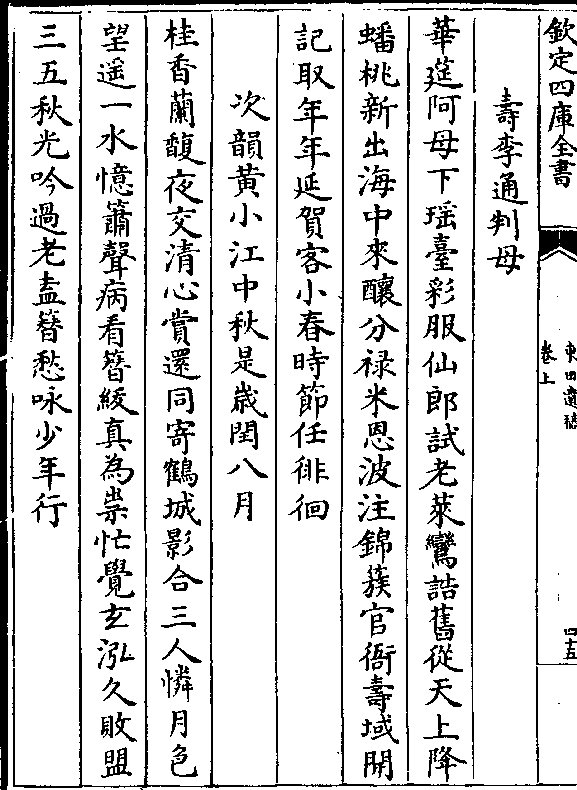 欽定四庫全書
東田遺稿
卷上
四十五
壽李通判母
華筵阿母下瑶臺彩服仙郎試老萊鸞誥舊從天上降
蟠桃新出海中來釀分禄米恩波注錦簇官衙壽域開
記取年年延賀客小春時節任徘徊
次韻黄小江中秋是歲閏八月
桂香蘭馥夜交清心賞還同寄鶴城影合三人憐月色
望遥一水憶簫聲病看簪綬真為祟忙覺玄泓久敗盟
三五秋光吟過老盍簪愁咏少年行